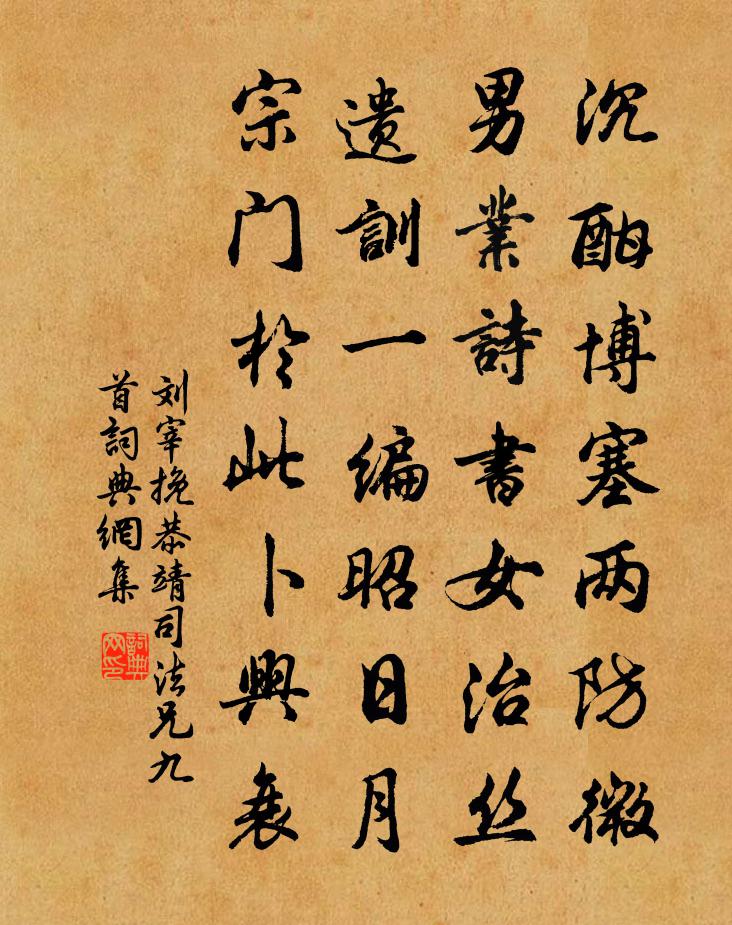 沉酣博塞两防微
男業詩書女治丝
遗訓一编昭日月
宗门於此卜興衰
刘宰挽恭靖司法兄九
首詞典網集
詞典网印